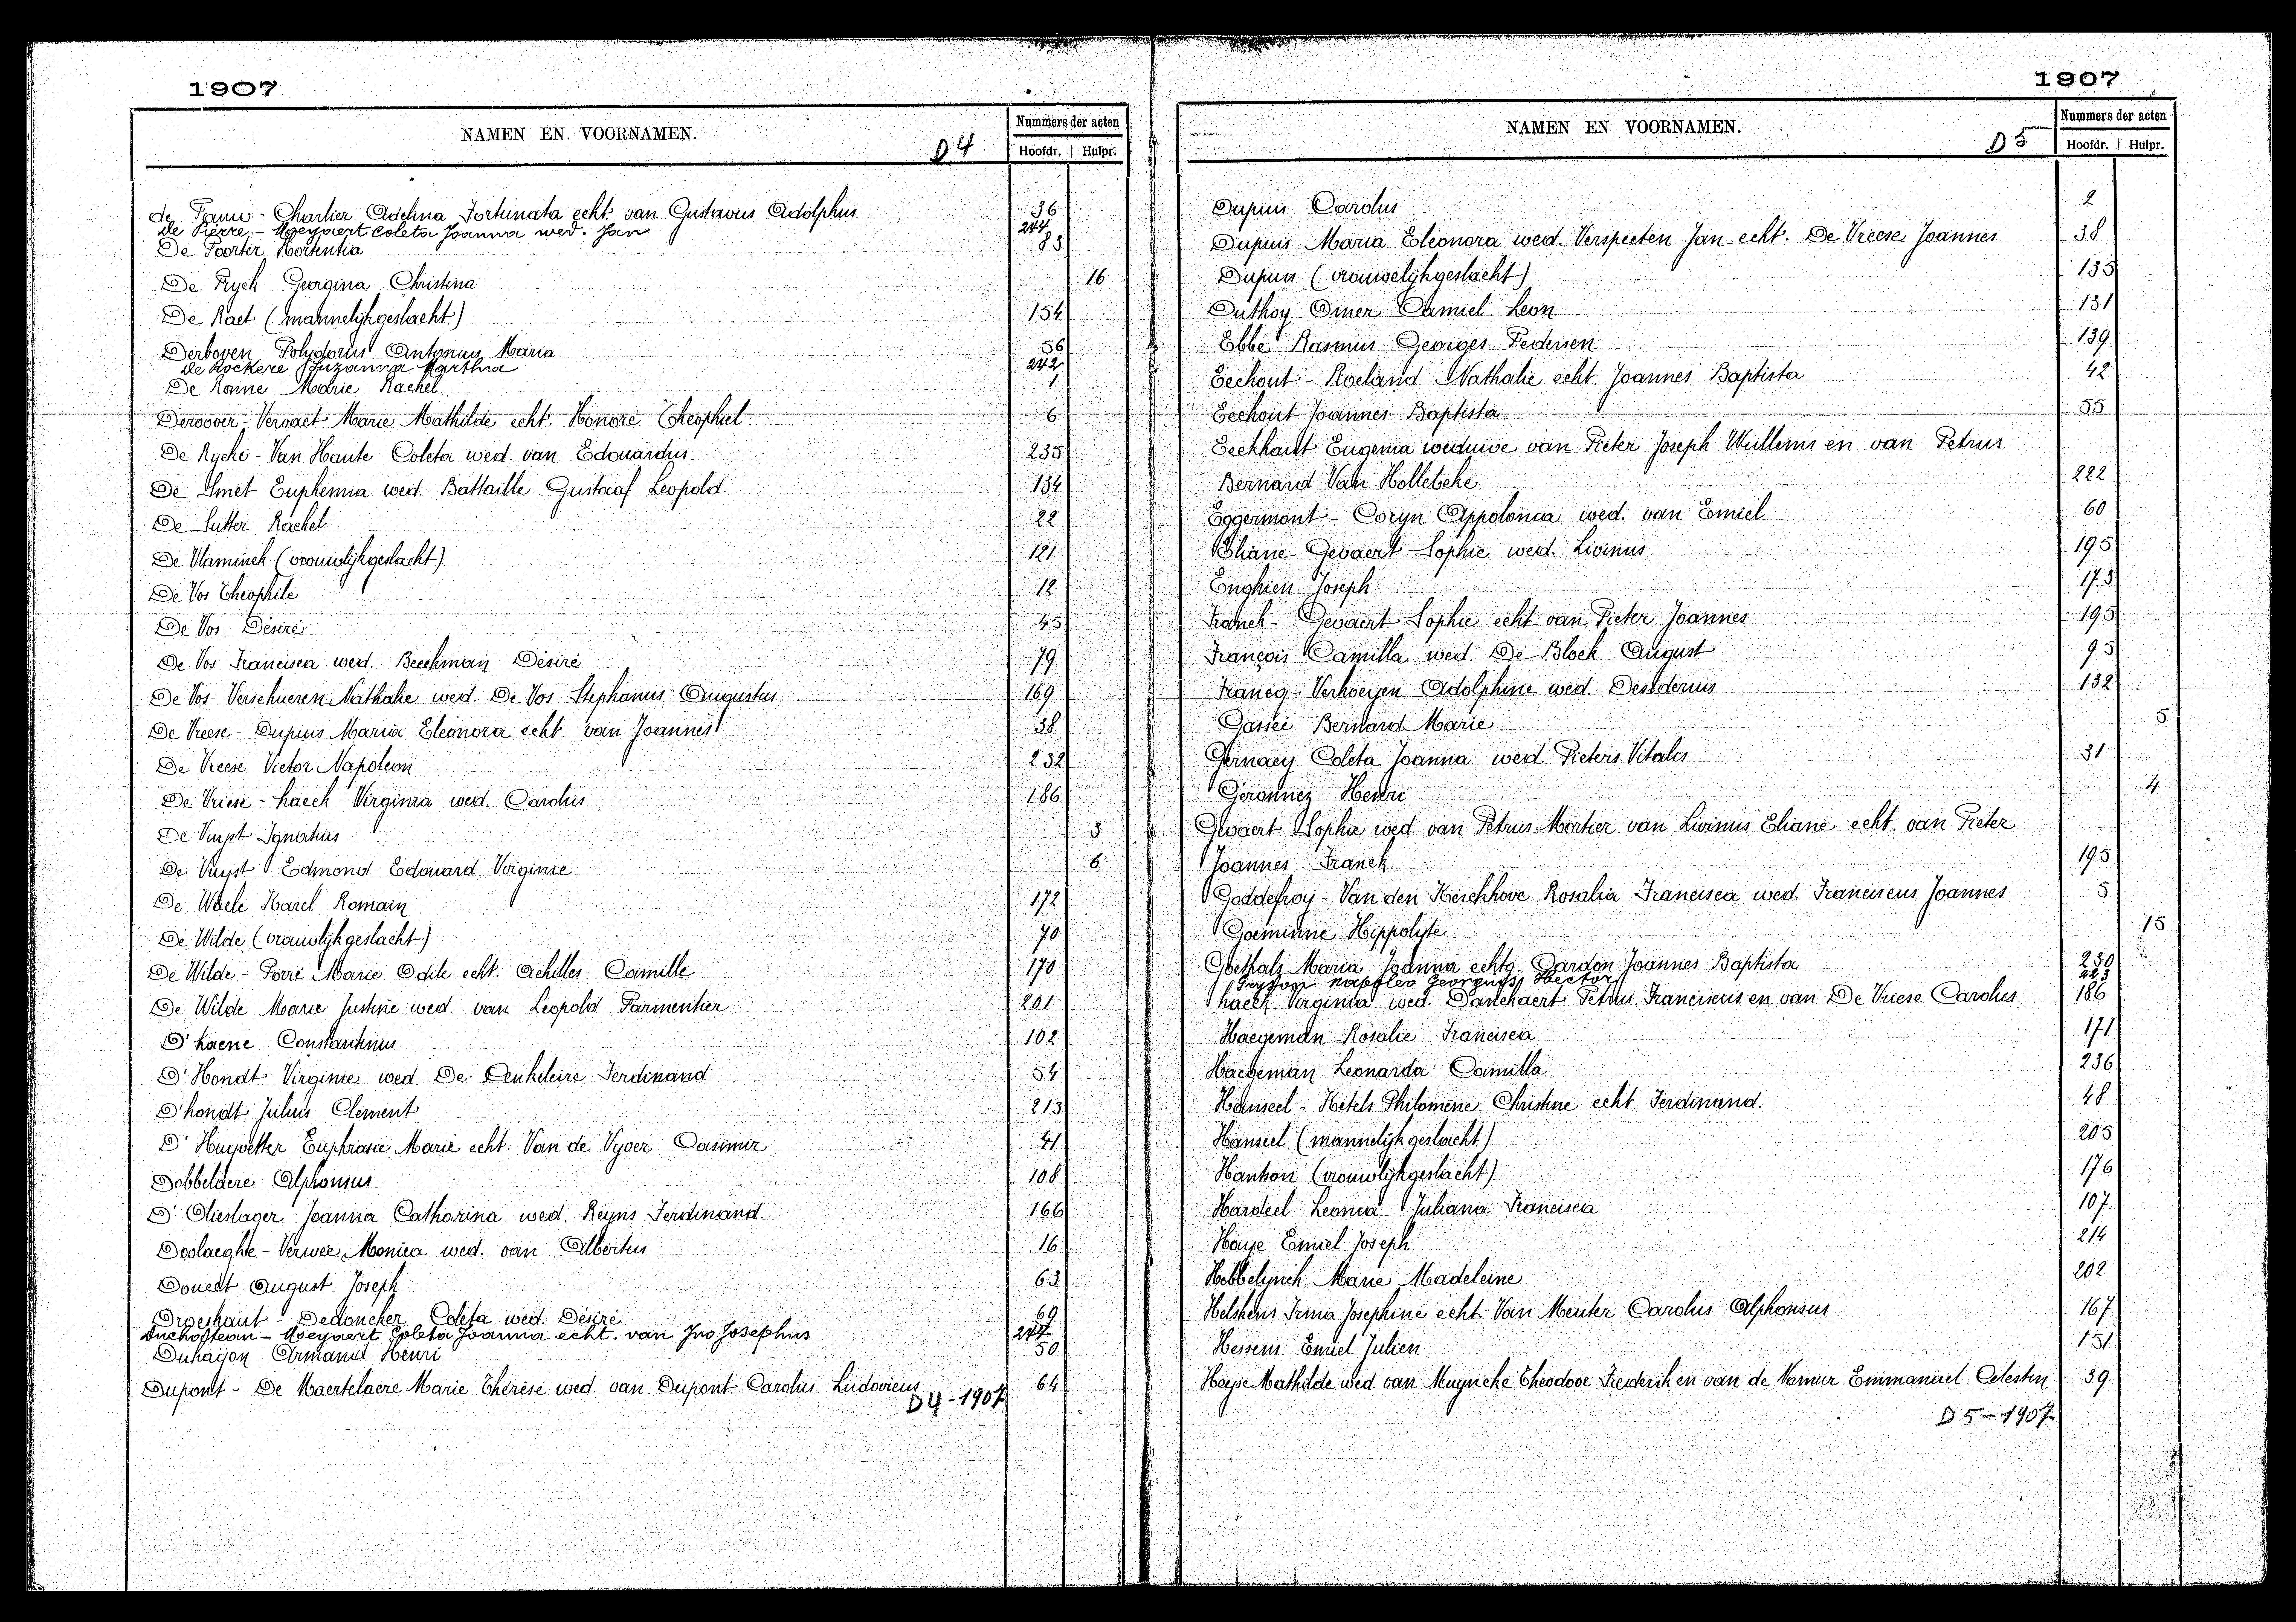 1907
NAMEN EN VOORNAMEN.
D4
Nummers der acten
Hoofdr. Hulpr.
de Pauw - Charlier Adelina Fortunata echt. van Gustavus Adolphus 36
De Pierre - Moeyaert Coleta Joanna wed. Jan 244
De Poorter Hortentia 83
De Ryck Georgina Christina 16
De Raet (mannelijkgeslacht) 154
Derboven Polydorus Antonius Maria 56
De Rockere Suzanna Martha 242
De Ronne Marie Rachel 1
Deroover - Vervaet Marie Mathilde echt. Honoré Theophiel 6
De Rycke - Van Haute Coleta wed. van Edouardus. 235
De Smet Euphemia wed. Battaille Gustaaf Leopold. 134
De Sutter Rachel 22
De Vlaminck (vrouwlijkgeslacht) 121
De Vos Theophile 12
De Vos Désiré 45
De Vos Francisca wed. Beeckman Désiré 79
De Vos - Verschueren Nathalie wed. De Vos Stephanus Augustus 169
De Vreese - Dupuis Maria Eleonora echt. van Joannes 38
De Vreese Victor Napoleon 232
De Vriese - haeck Virginia wed. Carolus 186
De Vuyst Ignatius 3
De Vuyst Edmond Edouard Virginie 6
De Waele Karel Romain 172
De Wilde (vrouwlijkgeslacht) 70
De Wilde - Porré Marie Odile echt. Achilles Camille 170
De Wilde Marie Justine wed. van Leopold Parmentier 201
D'haene Constantinus 102
D'Hondt Virginie wed. De Ceukeleire Ferdinand 54
D'hondt Julius Clement 213
D'Huyvetter Euphrasie Marie echt. Van de Vyver Casimir 41
Dobbelaere Alphonsus 108
D'Olieslager Joanna Catharina wed. Reyns Ferdinand. 166
Doolaeghe - Verwée Monica wed. van Albertus 16
Douest August Joseph 63
Droeshaut - Dedoncker Coleta wed. Désiré 69
Duchasteau - Moeyaert Coleta Joanna echt. van Ivo Josephus 244
Duhaijon Armand Henri 50
Dupont - De Maertelaere Marie Thérèse wed. van Dupont Carolus Ludovicus 64
D4-1907
1907
NAMEN EN VOORNAMEN.
D5
Nummers der acten
Hoofdr. Hulpr.
Dupuis Carolus 2
Dupuis Maria Eleonora wed. Verspeeten Jan echt. De Vreese Joannes 38
Dupuis (vrouwelijkgeslacht) 135
Duthoy Omer Camiel Leon 131
Ebbe Rasmus Georges Pedersen 139
Eeckout - Roeland Nathalie echt. Joannes Baptista 42
Eeckout Joannes Baptista 55
Eeckhaut Eugenia weduwe van Pieter Joseph Wullems en van Petrus
Bernard Van Hollebeke 222
Eggermont - Coryn Appolonia wed. van Emiel 60
Eliane - Gevaert Sophie wed. Livinus 195
Enghien Joseph 173
Franck - Gevaert Sophie echt van Pieter Joannes 195
François Camilla wed. De Block August 95
Francq - Verhoeyen Adolphine wed. Desiderius 132
Gassée Bernard Marie 5
Gernaey Coleta Joanna wed. Pieters Vitalis 31
Géronnez Henri 4
Gevaert Sophie wed. van Petrus Mortier van Livinus Eliane echt. van Pieter
Joannes Franck 195
Goddefroy - Van den Kerckhove Rosalia Francisca wed. Franciscus Joannes 5
Goeminne Hippolyte 15
Goethals Maria Joanna echtg. Dardon Joannes Baptista 230
Gryson Georgius Hector 223
haeck Virginia wed. Danckaert Petrus Franciscus en van De Vriese Carolus 186
Haegeman Rosalie Francisca 171
Haegeman Leonarda Camilla 236
Hanseel - Ketels Philomène Christine echt. Ferdinand. 48
Hanseel (mannelijkgeslacht) 205
Hanson (vrouwlijkgeslacht) 176
Hardeel Leonia Juliana Francisca 107
Haye Emiel Joseph 214
Hebbelynck Marie Madeleine 202
Helskens Irma Josephine echt. Van Meuter Carolus Alphonsus 167
Hessens Emiel Julien 151
Heyse Mathilde wed. van Muyncke Theodoor Frederik en van de Namur Emmanuel Celestin 39
D5-1907